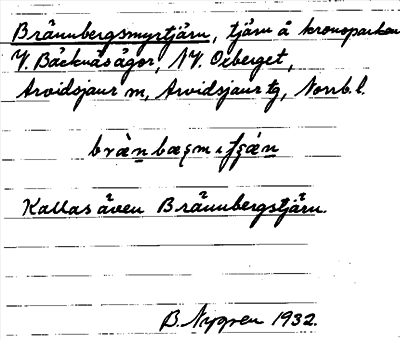 Brännbergsmyrtjärn, tjärn å kronoparken
V. Bäckvåsågor, NV. Oxberget,
Arvidsjaur m, Arvidsjaur tg, Norrb. l.
Kallas även Brännbergstjärn.
B. Nygren 1932.